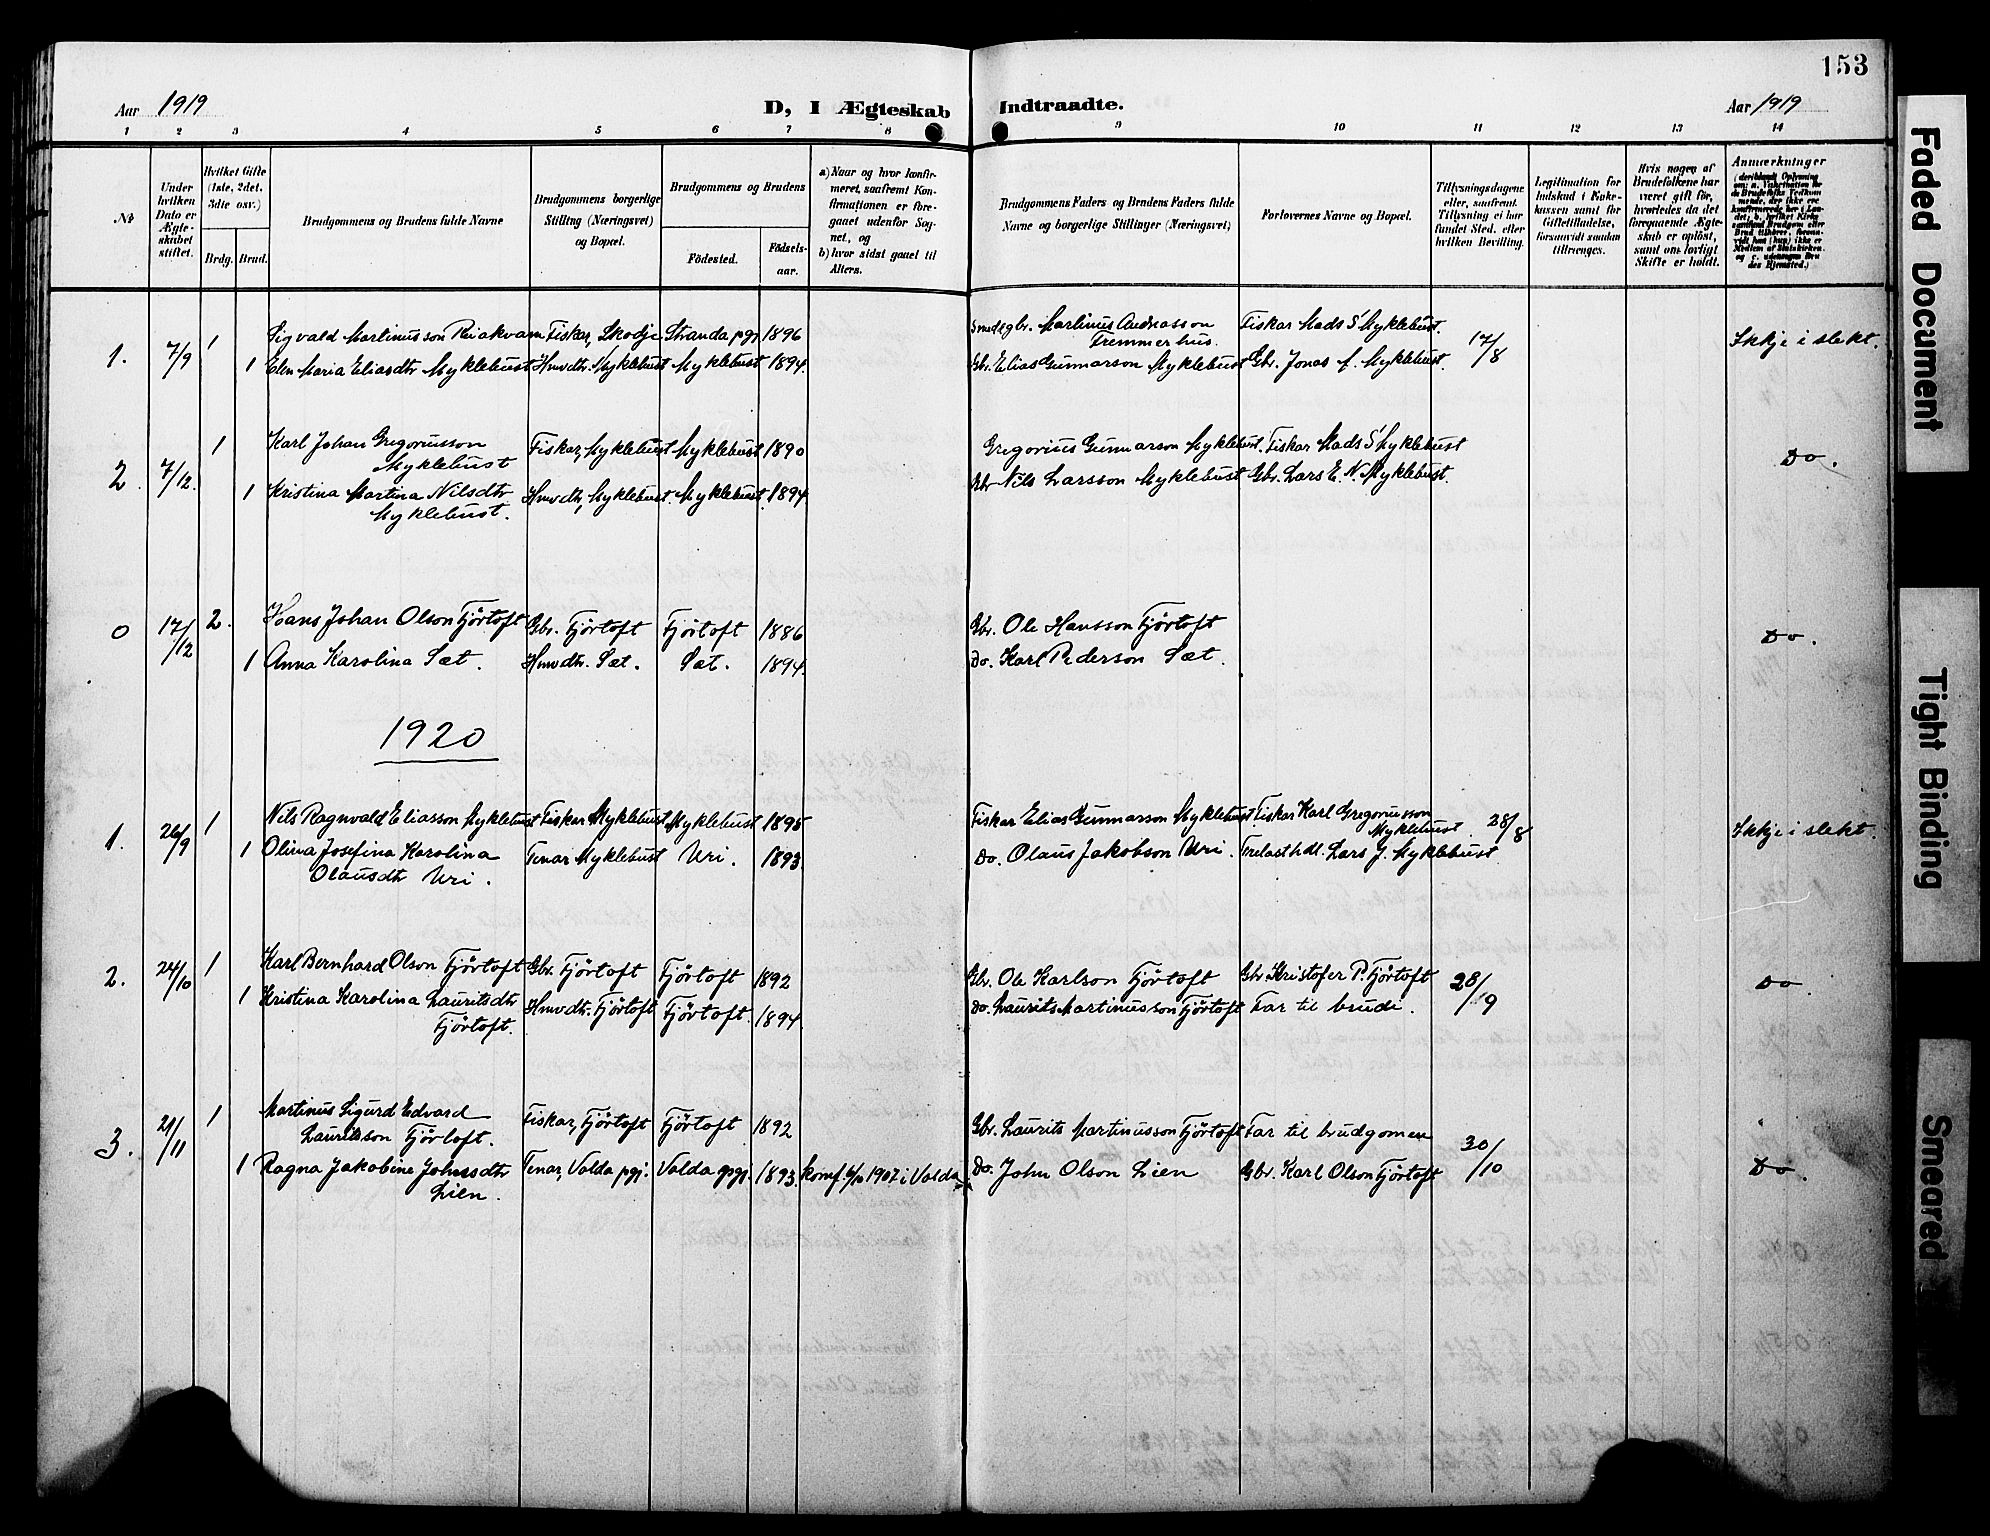 153
Aar 1919
D, I Ægteskab Indtraadte.
Aar 1919
1 2 3 4 5 6 7 8 9 10 11 12 13 14
No
Under hvilken Dato er Ægteskabet stiftet.
Hvilket Gifte (1ste, 2det, 3die osv.)
Brdg. Brud.
Brudgommens og Brudens fulde Navne
Brudgommens borgerlige Stilling (Næringsvei) og Bopæl.
Brudgommens og Brudens
Födested.
Födselsaar.
a) Naar og hvor konfirmeret, saafremt Konfirmationen er foregaaet udenfor Sognet, og
b) hvor sidst gaaet til Alters.
Brudgommens Faders og Brudens Faders fulde Navne og borgerlige Stillinger (Næringsvei)
Forlovernes Navne og Bopæl.
Tillysningsdagene eller, saafremt Tillysning ei har fundet Sted, efter hvilken Bevilling.
Legitimation for Indskud i Enkekassen samt for Giftetilladelse, forsaavidt saadan tiltrænges.
Hvis nogen af Brudefolkene har været gift før, hvorledes da det foregaaende Ægteskab er oplöst, samt om lovligt Skifte er holdt.
Anmærkninger
1. 7/9 1 Sigvald Martinusson Fiskar, Skodje Stranda pgj 1896 Martinus Andreasson Fremmerhus. Fiskar Mads S Myklebust. 17/8 Ikkje i slekt.
1 Elen Maria Eliasdtr Myklebust Hmvdtr. Myklebust Myklebust 1894. Gbr. Elias Gunnarson Myklebust Gbr. Jonas A. Myklebust.
2. 7/12. 1 Karl Johan Gregoriusson Myklebust Fiskar, Myklebust Myklebust 1890 Gregorius Gunnarson Myklebust. Fiskar Mads S Myklebust Do.
1 Kristina Martina Nilsdtr Myklebust. Hmvdtr, Myklebust Myklebust. 1894 Gbr Nils Larsson Myklebust Gbr. Lars E. N. Myklebust.
0 17/12 2. Hans Johan Olson Fjörtoft Gbr. Fjörtoft Fjörtoft 1886 Gbr. Ole Hansson Fjörtoft Do.
1 Anna Karolina Sæt. Hmvdtr. Sæt. Sæt. 1894. Do. Karl Pederson Sæt.
1920
1. 26/9 1 Nils Ragnvald Eliasson Myklebust Fiskar Myklebust Myklebust 1895 Fiskar Elias Gunnarson Myklebust Fiskar Karl Gregoriusson Myklebust 28/8 Ikkje i slekt.
1 Olina Josefina Karolina Olausdtr Uri. Tenar Myklebust Uri. 1893 Do. Olaus Jakobson Uri. Trelasthdl. Lars J. Myklebust
2. 24/10 1 Karl Bernhard Olson Fjörtoft Gbr. Fjörtoft Fjörtoft 1892 Gbr. Ole Karlson Fjörtoft Gbr Kristofer P. Fjörtoft 28/19 Do.
1 Kristina Karolina Lauritsdtr Fjörtoft. Hmvdtr. Fjörtoft Fjörtoft. 1894. Do. Laurits Martinusson Fjörtoft Far til brudi.
3. 21/11 1 Martinus Sigurd Edvard Lauritsson Fjörtoft. Fiskar, Fjörtoft Fjörtoft 1892 Gbr. Laurits Martinusson Fjörtoft Far til brudgomen 30/10 Do.
1 Ragna Jakobine Johnsdtr Lien. Tenar, Volda pgj. Volda pgj. 1893. konf. 1907 i Volda Do. John Olson Lien Gbr. Karl Olson Fjörtoft
Faded Document
Tight Binding
Smeared